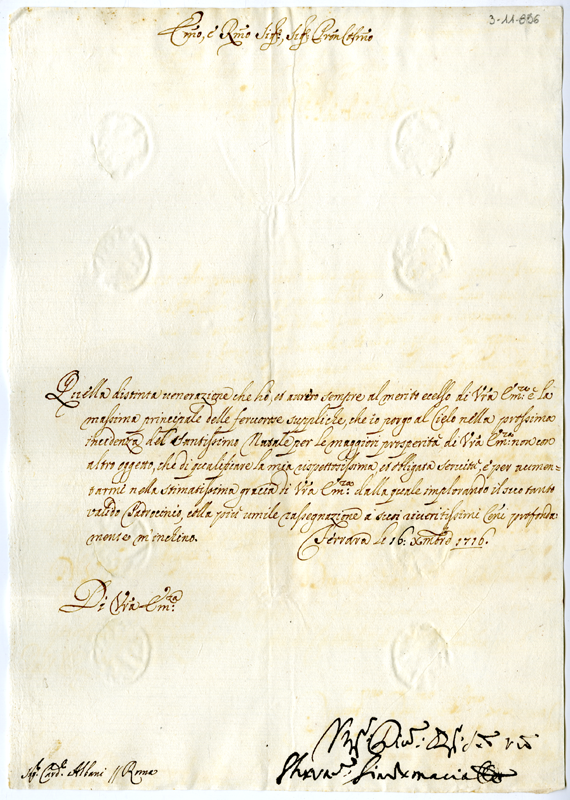 3-11-896
Emo, e Rmo Sigr, Sigr Pron Colmo
Quella distinta venerazione che ho, et averò sempre al merito ecelso di Vra Emza è la
massima principale delle fervorose suppliche, che io porgo al Cielo nella prossima
incidenza del Santissimo Natale per le maggiori prosperità di Vra Emza non con
altro oggetto, che di qualificare la mia rispettosissima et obligata servitù, e per aumen=
tarmi nella stimatissima gracia di Vra Emza dalla quale implorando il suo tanto
valido Patrocinio, colla più umile rassegnazione a suoi riveritissimi Cenni profonda
mente m'inchino. Ferrara li 16: Xmbre 1716.
Di Vra Emza
Sigr Card. Albani // Roma